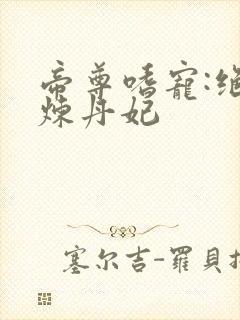 帝尊嗜寵:絕
煉丹妃
塞尔吉-羅貝